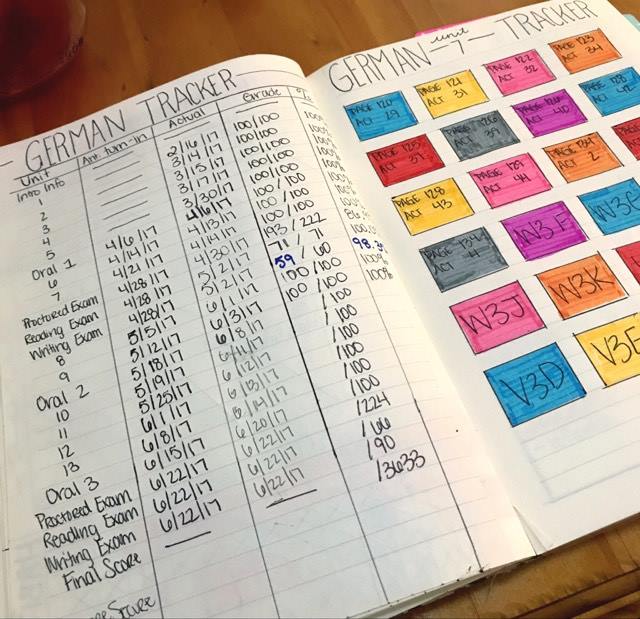 GERMAN TRACKER
Unit
Intro Info
1
2
3
4
5
Oral 1
6
7
Proctored Exam
Reading Exam
Writing Exam
8
9
Oral 2
10
11
12
13
Oral 3
Proctored Exam
Reading Exam
Writing Exam
Final Score
Score
Ant. turn-in
4/6/17
4/14/17
4/21/17
4/28/17
4/28/17
4/28/17
5/5/17
5/12/17
5/18/17
5/19/17
5/25/17
6/1/17
6/8/17
6/15/17
6/22/17
6/22/17
6/22/17
Actual
2/16/17
3/14/17
3/15/17
3/17/17
3/30/17
4/6/17
4/13/17
4/14/17
4/30/17
5/2/17
5/2/17
6/1/17
6/3/17
6/8/17
6/11/17
6/12/17
6/13/17
6/14/17
6/20/17
6/22/17
6/22/17
6/22/17
Grade
100/100
100/100
100/100
100/100
100/100
100/100
100/100
193/222
71/71
59/60
100/100
100/100
/100
/100
/100
/100
/100
/100
/224
/66
/90
/3633
%
100%
100%
100%
100%
GERMAN unit 7 TRACKER
PAGE 120 PAGE 121 PAGE 122 PAGE 123
ACT 29 ACT 31 ACT 32 ACT 34
PAGE 125 PAGE 126 PAGE 126 PAGE 128
ACT 37 ACT 39 ACT 40 ACT 42
PAGE 128 PAGE 129 PAGE 134
ACT 43 ACT 44 ACT 2
PAGE 134 W3F
ACT 4
W3J W3K
V3D V3E